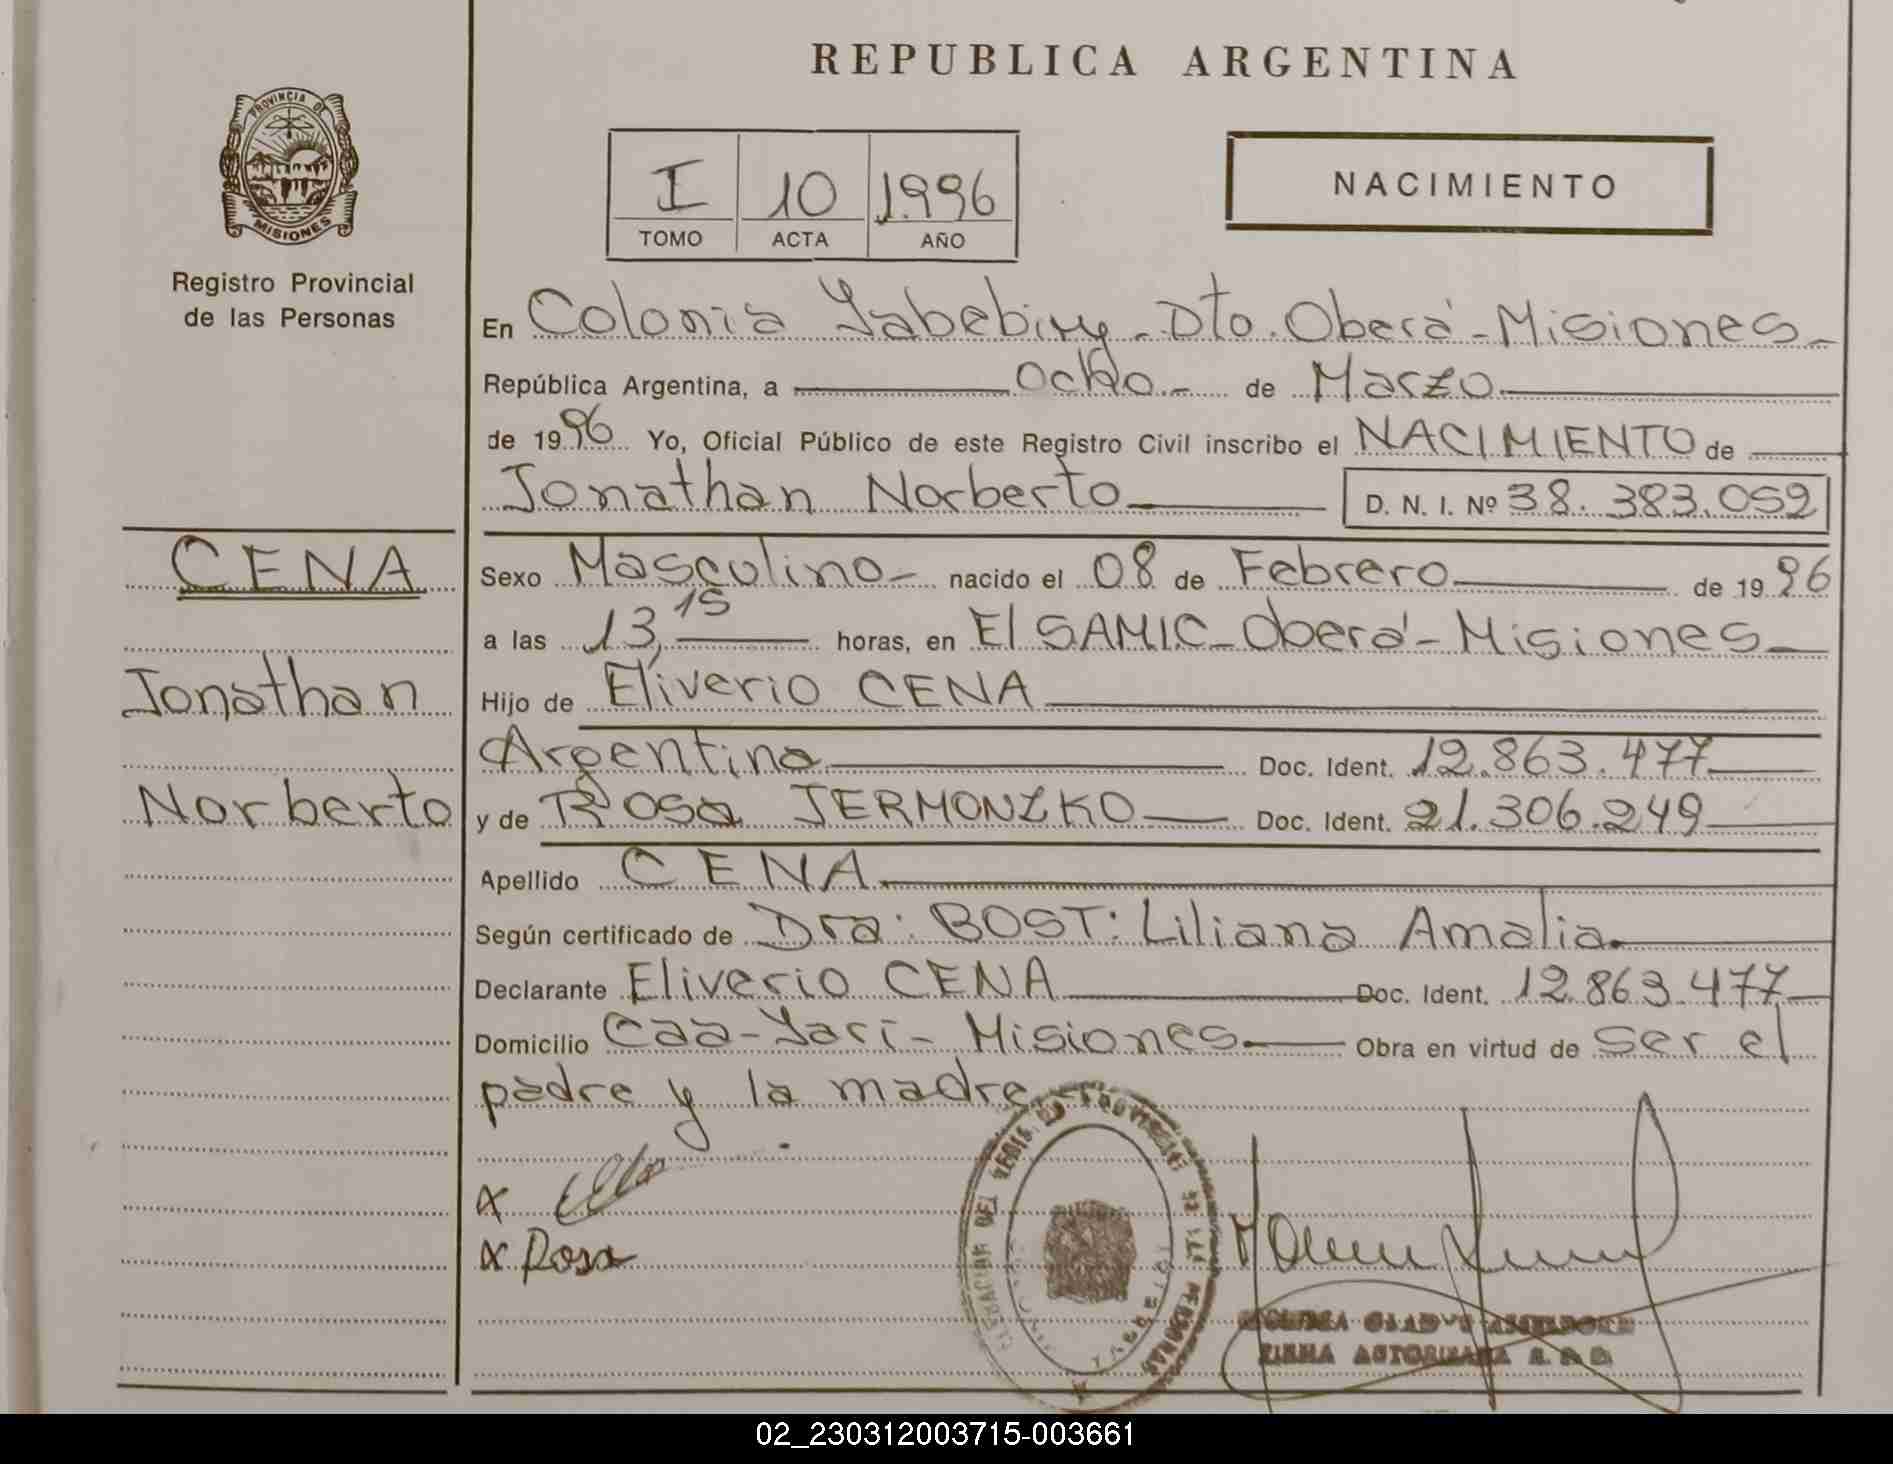 REPUBLICA ARGENTINA
PROVINCIA DE
MISIONES
Registro Provincial
de las Personas
I 10 1.996
TOMO ACTA AÑO
NACIMIENTO
En Colonia Yabebiry-Dto. Oberá-Misiones-
República Argentina, a Ocho- de Marzo
de 1996 Yo, Oficial Público de este Registro Civil inscribo el NACIMIENTO de
Jonathan Norberto D. N. I. Nº 38.383.052
CENA
Jonathan
Norberto
Sexo Masculino- nacido el 08 de Febrero de 1996
a las 13,15 horas, en El SAMIC-Oberá-Misiones
Hijo de Eliverio CENA
Argentino Doc. Ident. 12.863.477
y de Rosa JERMONZKO Doc. Ident. 21.306.249
Apellido CENA
Según certificado de Dra: BOST: Liliana Amalia.
Declarante Eliverio CENA Doc. Ident. 12.863.477
Domicilio Caa-Yarí- Misiones Obra en virtud de ser el
padre y la madre
x
x Rosa
02_230312003715-003661